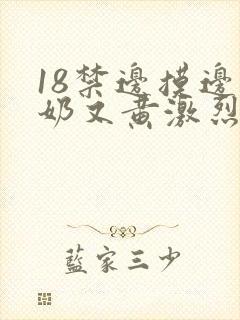 18禁邊摸邊
奶又黃激烈
藍家三少